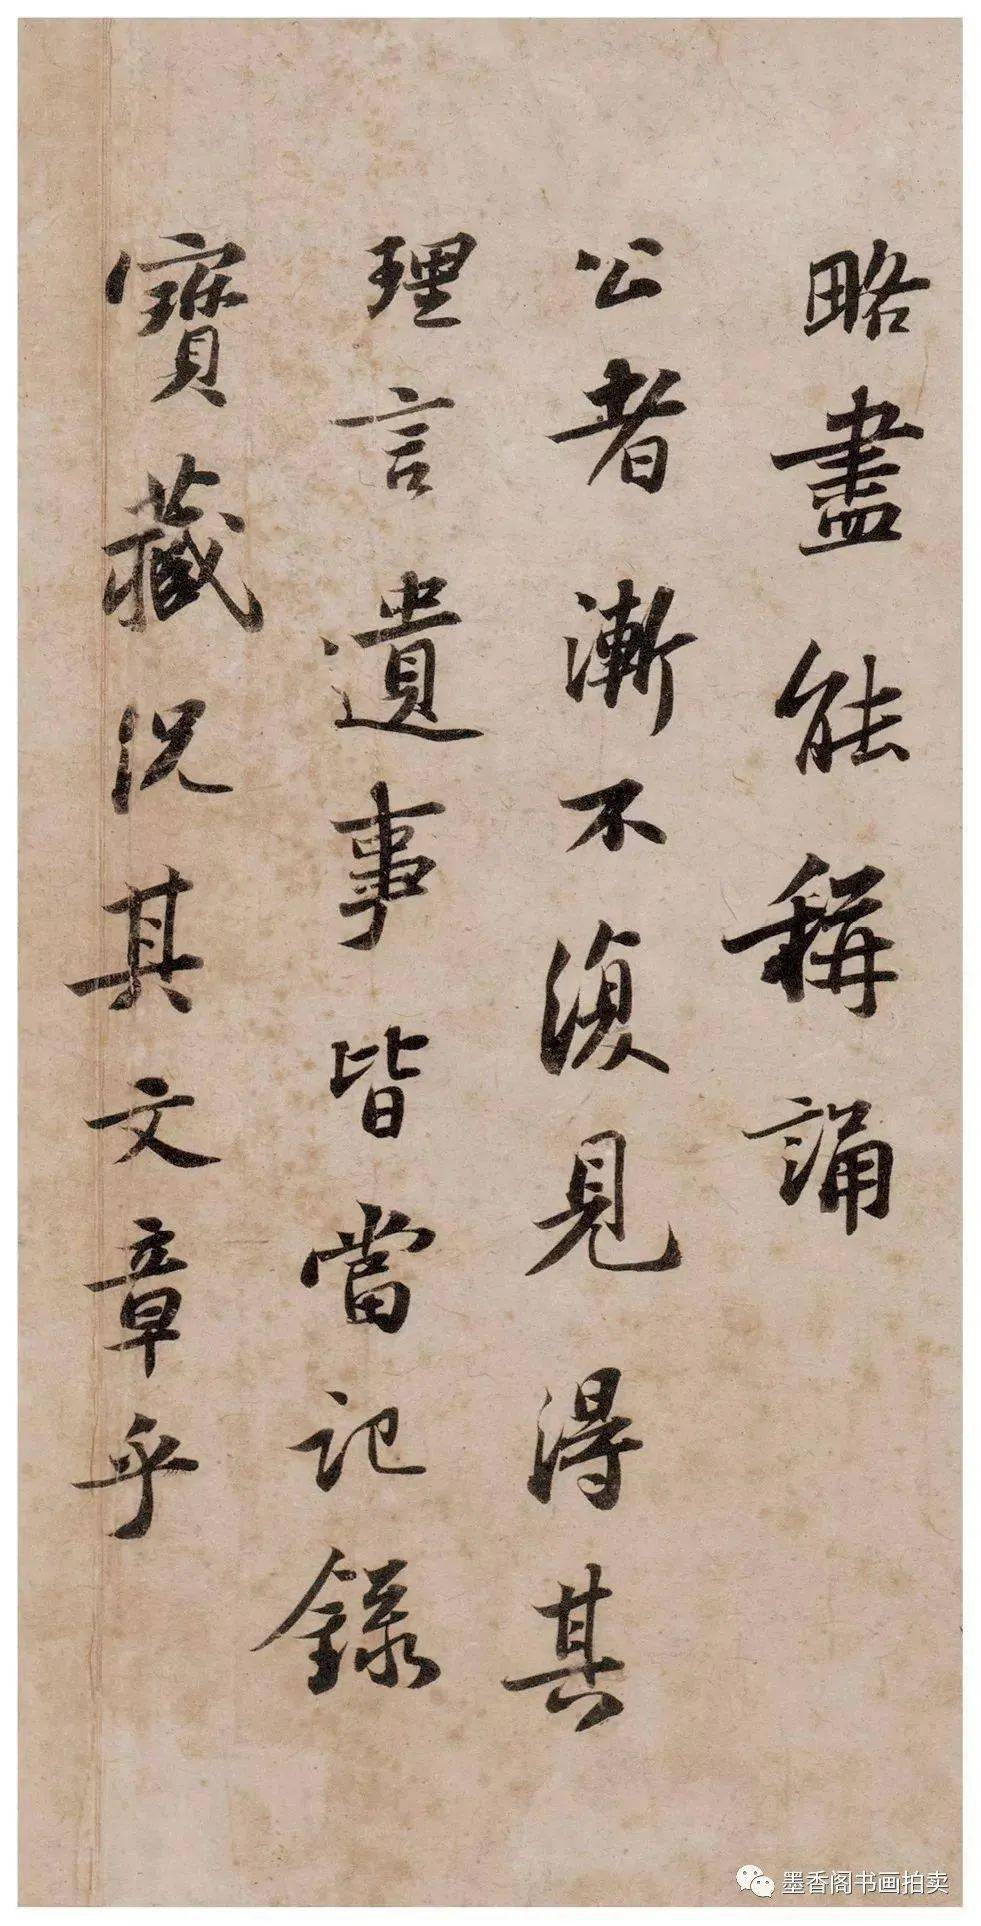 略盡能稱誦
公者漸不復見得其
理言遺事皆當記錄
寶藏況其文章乎
墨香阁书画拍卖